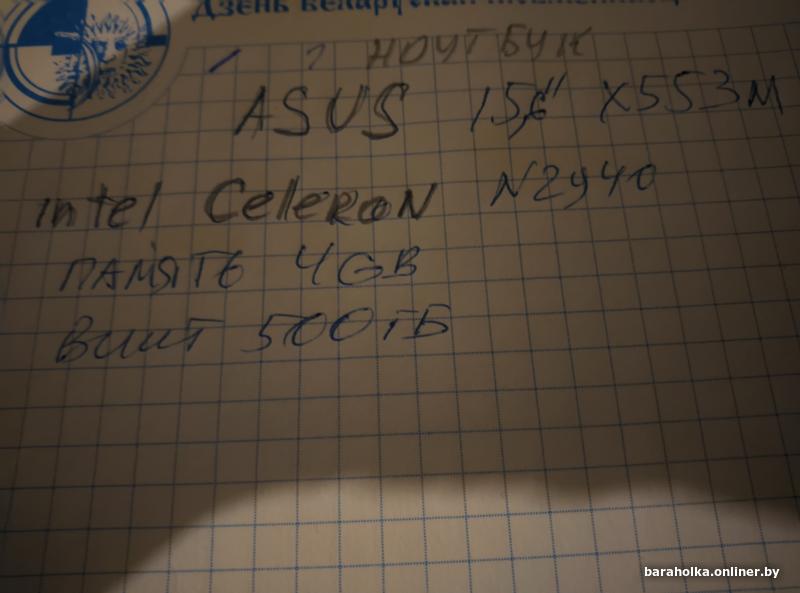 Дзень беларускай
НОУТБУК
ASUS 15,6" X553M
intel CeleRoN N2940
ПАМЯТЬ 4GB
ВИНТ 500ГБ
baraholka.onliner.by